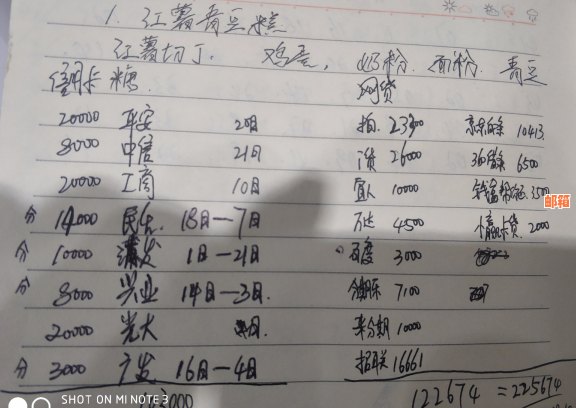 1. 红薯青豆糕
红薯切丁. 鸡蛋, 奶粉. 面粉. 青豆
信用卡 糖. 网贷
20000 平安 20日 拍. 23300 京东白条 10413
8000 中信 21日 26000 360借条 6500
20000 工商 10日 宜人 10000 3500
分 14000 民生 18日—7日 万达 4500 卡贷. 2000
分 10000 浦发 1日—21日 百度 3000
分 8000 兴业 14日—3日. 分期乐 7100
20000 光大 日. 来分期 10000
分 3000 广发 16日—4日 招联 16661
3000 122674 =225674
SHOT ON MI NOTE 3
邮箱